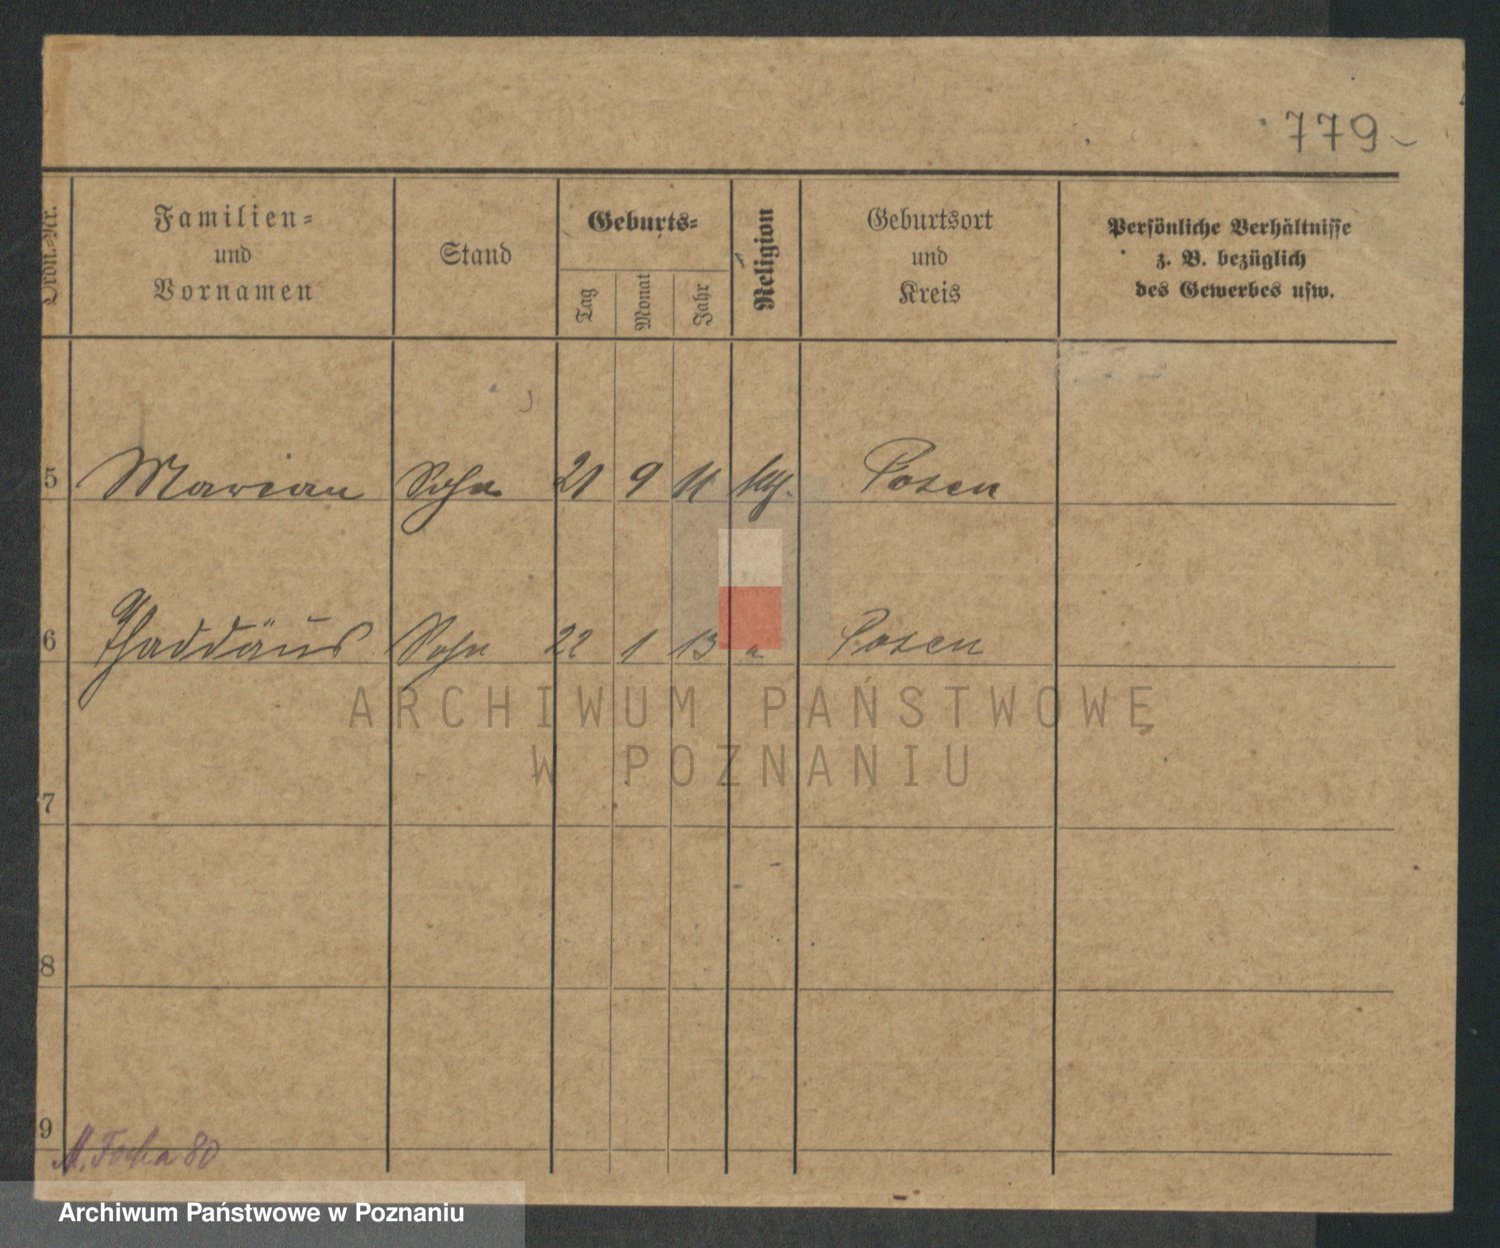 779
Ordn.-Nr.
Familien-
und
Vornamen
Stand
Geburts-
Tag
Monat
Jahr
Religion
Geburtsort
und
Kreis
Persönliche Verhältnisse
z. B. bezüglich
des Gewerbes usw.
5 Marian Sohn 21 9 11 kth. Posen
6 Thaddäus Sohn 22 1 13 " Posen
ARCHIWUM PAŃSTWOWE
W POZNANIU
7
8
9
M. Focha 80
Archiwum Państwowe w Poznaniu